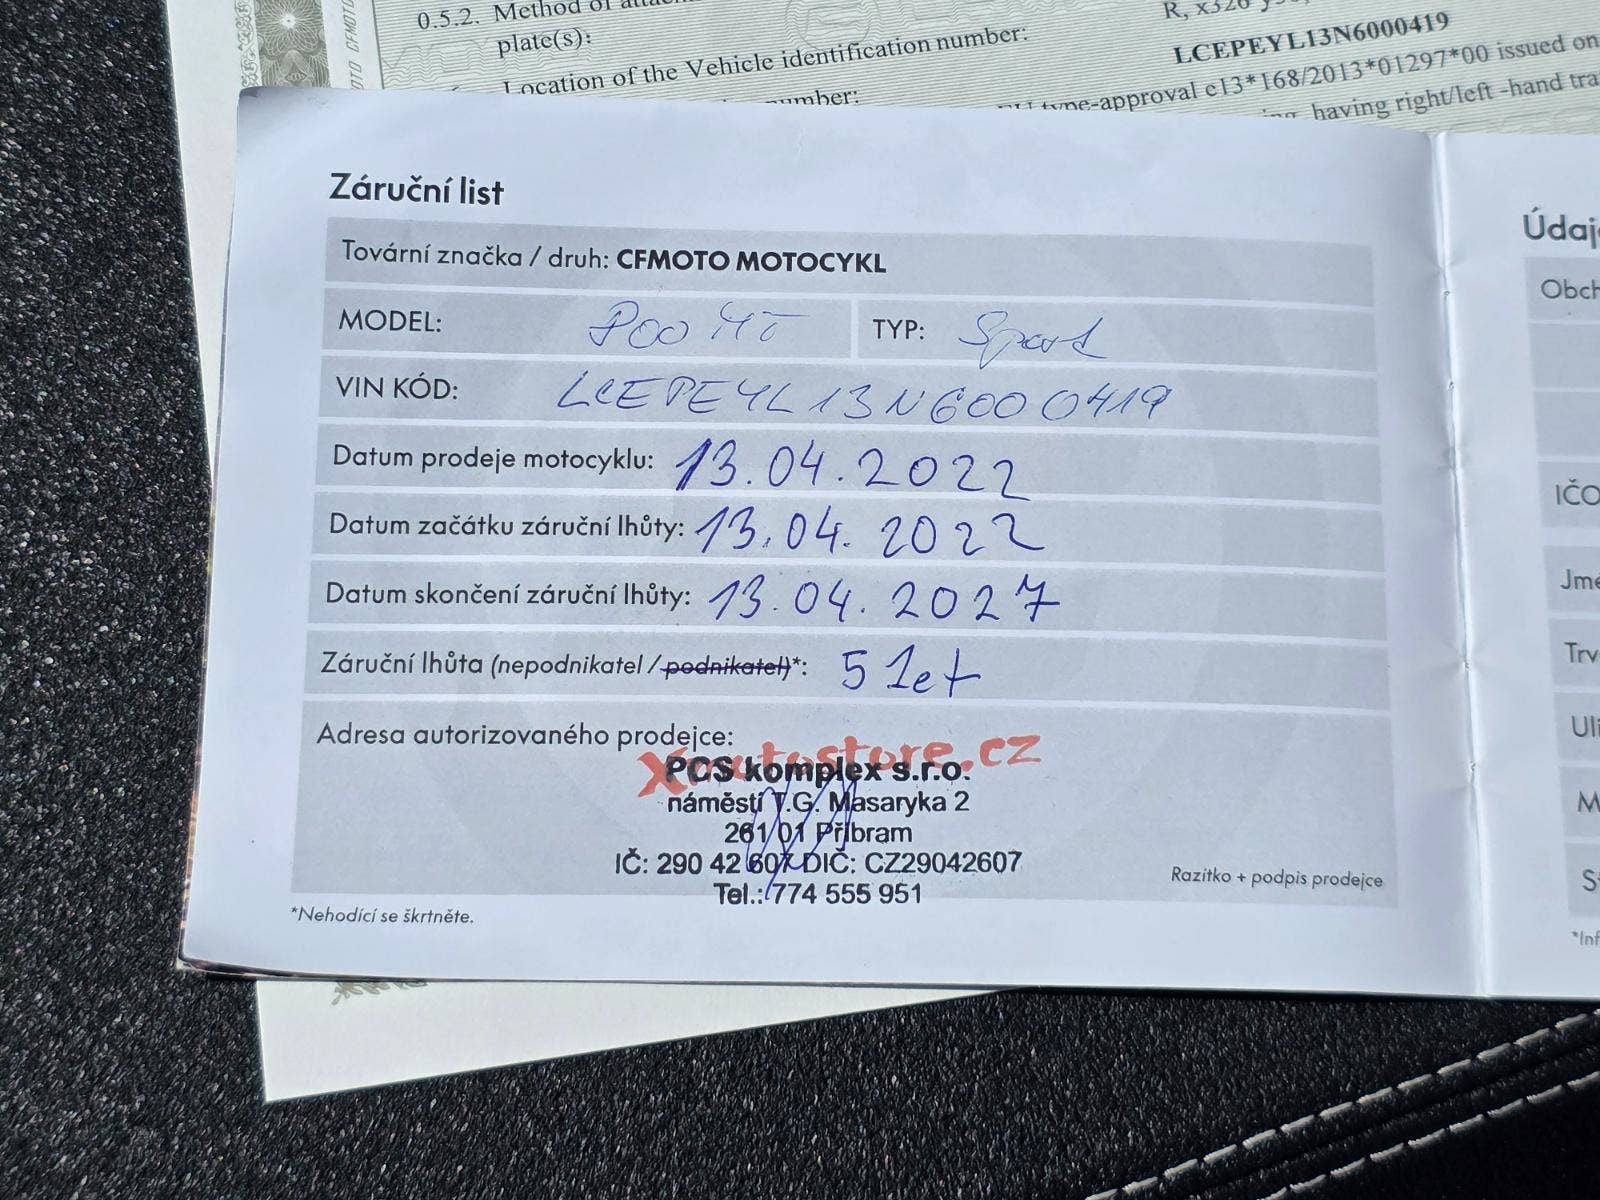 0.5.2. Method of
plate(s):
Location of the Vehicle identification number:
LCEPEYL13N6000419
type-approval e13*168/2013*01297*00 issued on
having right/left -hand
CFMOTO
Záruční list
Tovární značka / druh: CFMOTO MOTOCYKL
MODEL: 800 MT TYP: Sport
VIN KÓD: LCEPEYL13N6000419
Datum prodeje motocyklu: 13.04.2022
Datum začátku záruční lhůty: 13.04.2022
Datum skončení záruční lhůty: 13.04.2027
Záruční lhůta (nepodnikatel / podnikatel)*: 5 let
Adresa autorizovaného prodejce:
Xmotostore.cz
PCS komplex s.r.o.
náměstí T.G. Masaryka 2
261 01 Příbram
IČ: 290 42 607 DIČ: CZ29042607
Tel.: 774 555 951
Razítko + podpis prodejce
*Nehodící se škrtněte.
IČO